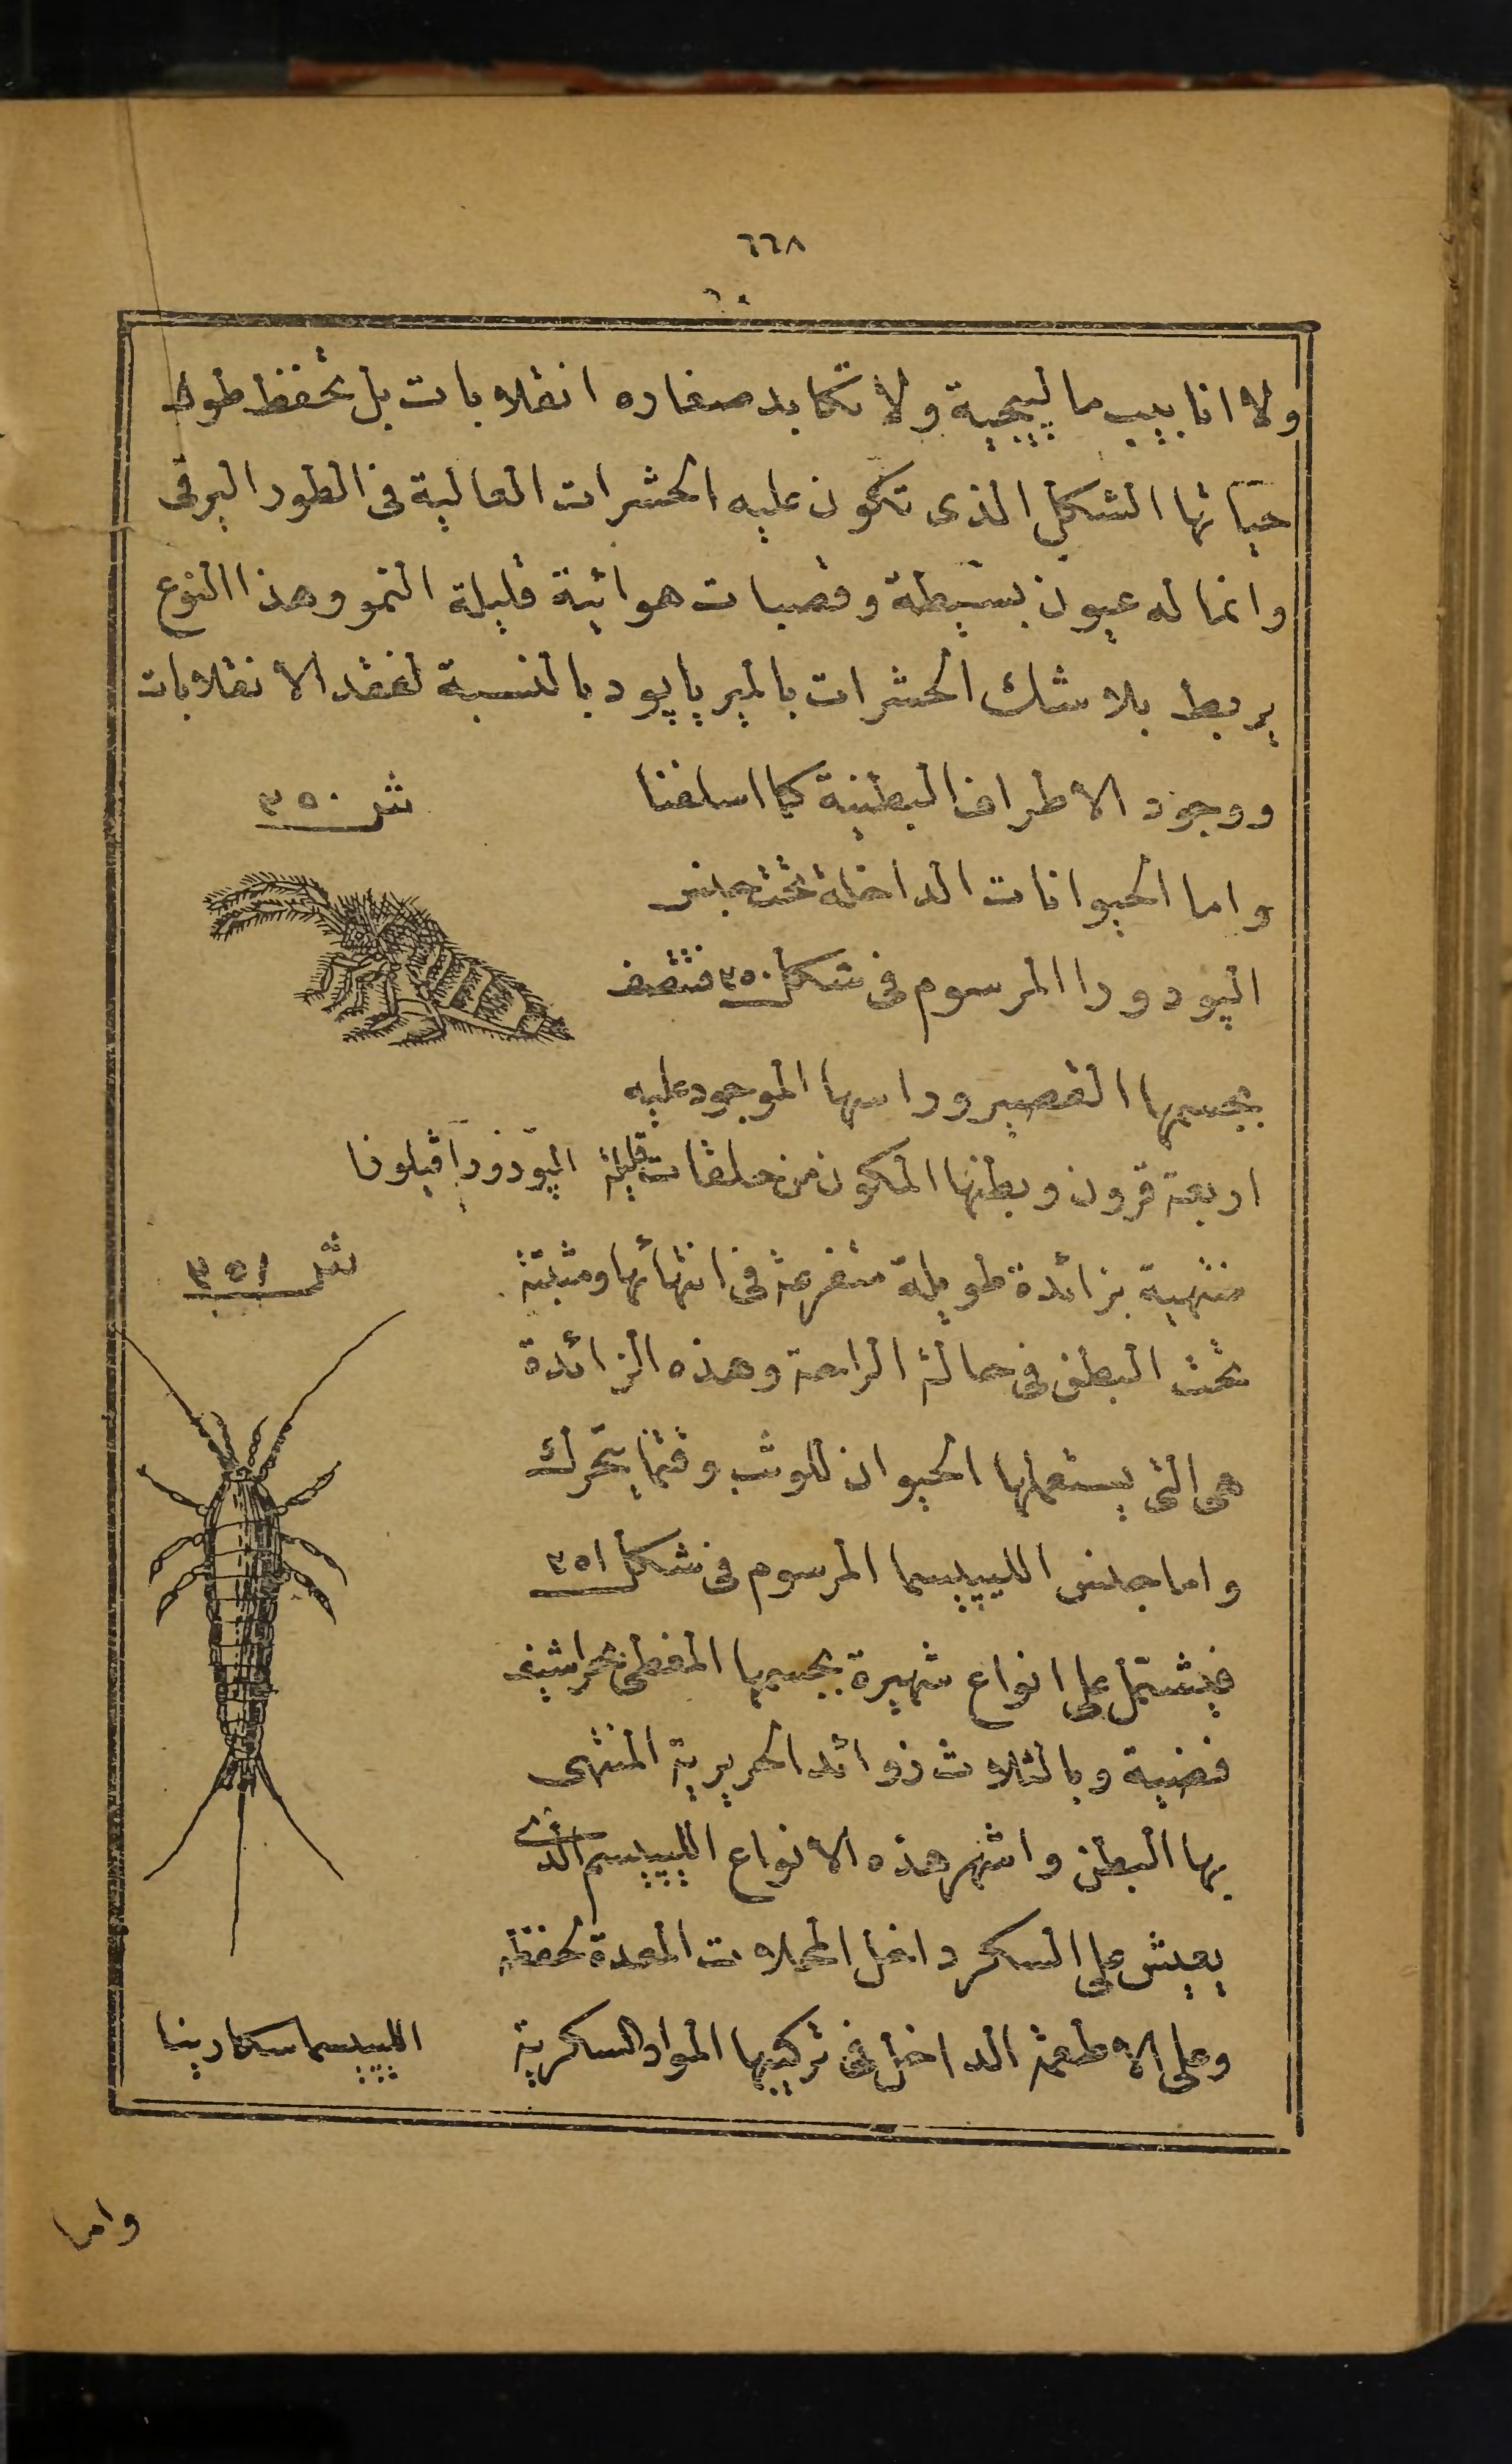 ٦٦٨
ولا انابيب مالپيجية ولا تكابد صغاره انقلابات بل تحفظ طول
حياتها الشكل الذى تكون عليه الحشرات العالية فى الطور اليرقى
وانما له عيون بسيطة وقصبات هوائية قليلة النمو وهذا النوع
يربط بلا شك الحشرات بالميرياپود بالنسبة لفقد الانقلابات
ووجود الاطراف البطنية كما اسلفنا
شر ٣٥٠
واما الحيوانات الداخلة تحت جنس
الپودورا المرسوم فى شكل ٣٥٠ فتتصف
بجسمها القصير وراسها الموجود عليه
اربعة قرون وبطنها المكون من حلقات قليلة
الپودورا ڤيلوزا
منتهية بزائدة طويلة متفرعة فى انتهائها ومثبتة
شر ٣٥١
تحت البطن فى حالة الراحة وهذه الزائدة
هى التى يستعملها الحيوان للوثب وقتما يتحرك
واما جنس الليپيسما المرسوم فى شكل ٣٥١
فيشتمل على انواع شهيرة بجسمها المغطى بحراشيف
فضية وبالثلاث زوائد الحريرية المنتهى
بها البطن واشهر هذه الانواع الليپيسم الذى
يعيش على السكر داخل المحلات المعدة لحفظه
وعلى الاطعمة الداخل فى تركيبها المواد السكرية
الليپيسما سكارينا
واما